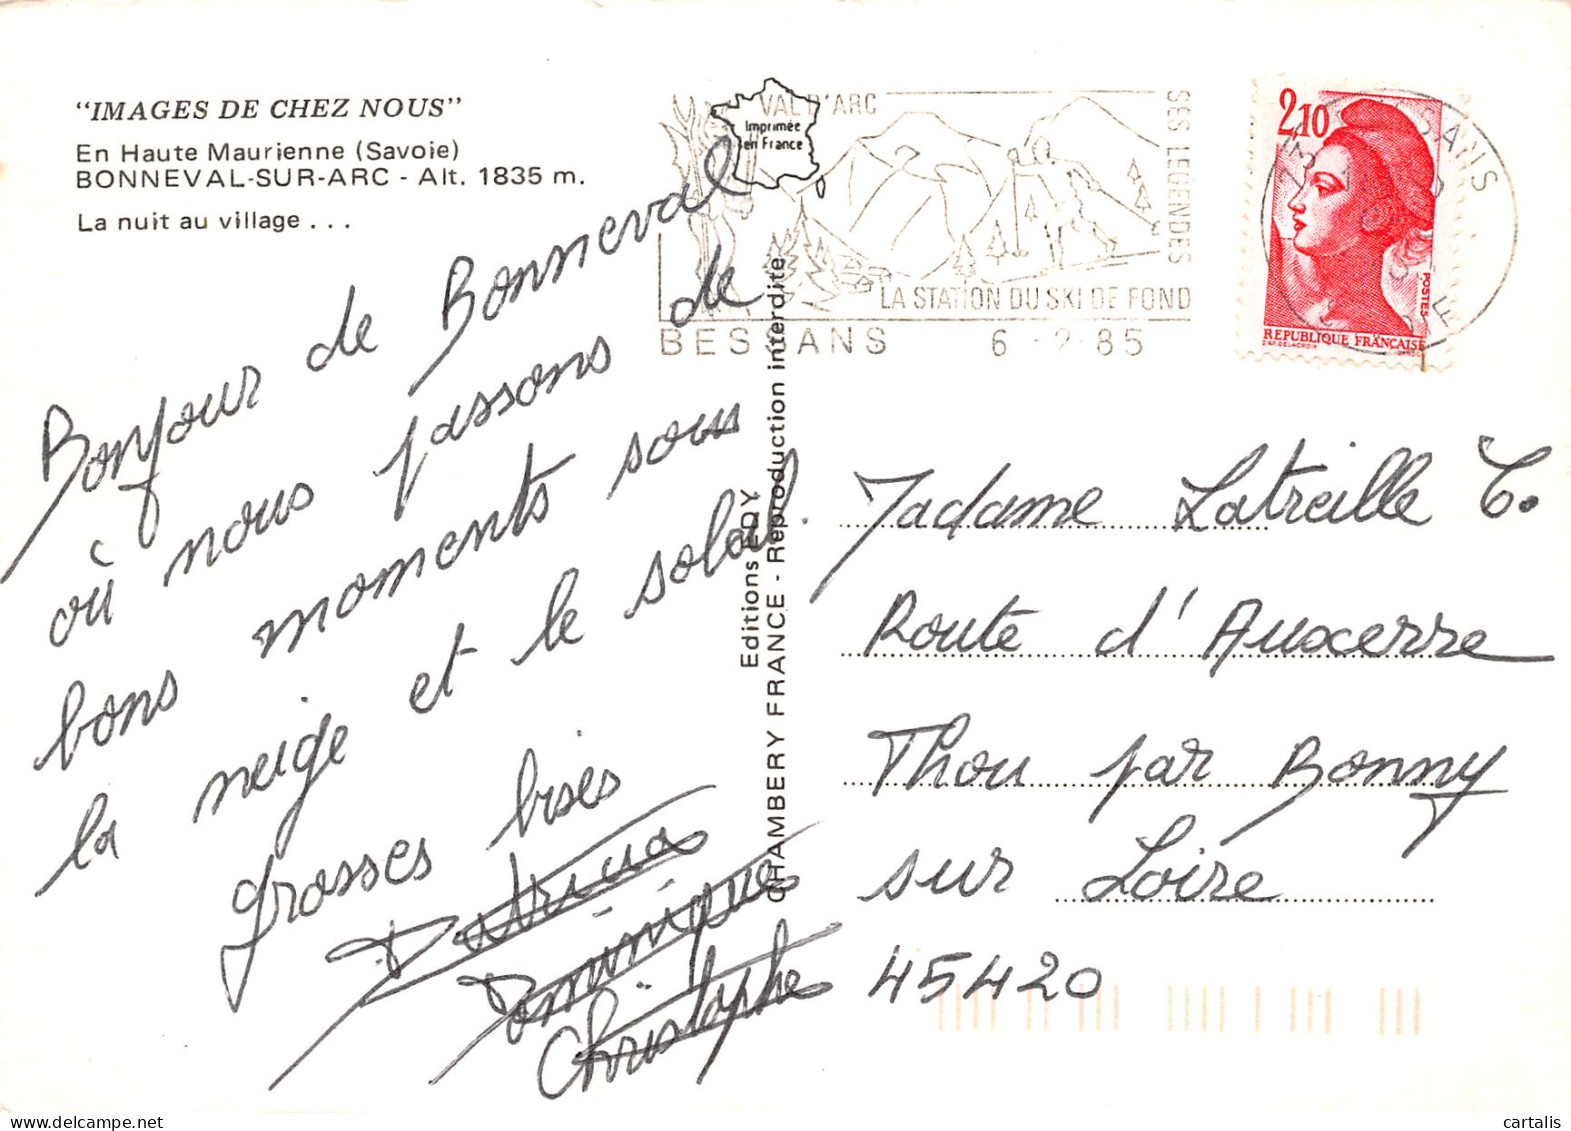 "IMAGES DE CHEZ NOUS"
En Haute Maurienne (Savoie)
BONNEVAL-SUR-ARC - Alt. 1835 m.
La nuit au village . . .
Bonjour de Bonneval
où nous passons de
bons moments sous
la neige et le soleil.
grosses bises
Dominique
Christophe
Imprimée
en France
Editions EDY
CHAMBERY FRANCE - Reproduction interdite
VAL D'ARC
SES LEGENDES
LA STATION DU SKI DE FOND
BESSANS 6 - 2 - 85
2,10
POSTES
REPUBLIQUE FRANÇAISE
D'AP. DELACROIX
Madame Latreille C.
Route d'Auxerre
Thou par Bonny
sur Loire
45420
cartalis